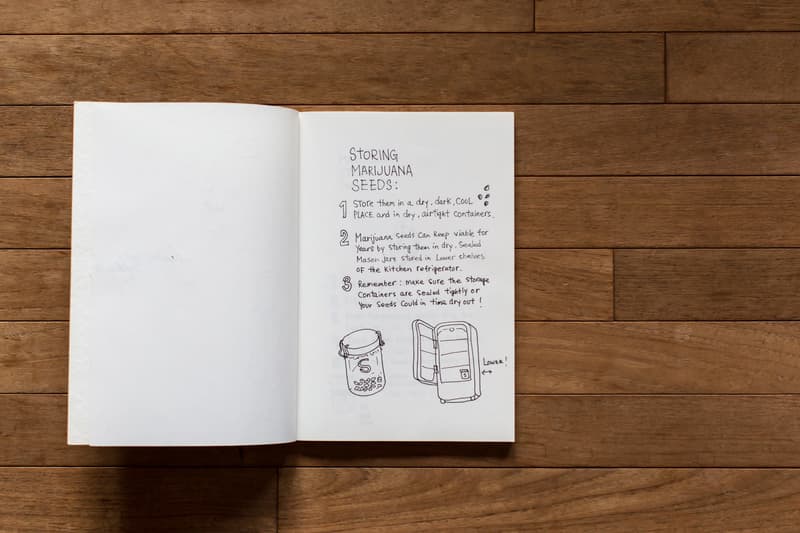 STORING
MARIJUANA
SEEDS:
1 Store them in a dry, dark, COOL
PLACE and in dry, airtight containers.
2 Marijuana seeds can keep viable for
Years by storing them in dry. Sealed
Mason Jars stored in Lower shelves
OF the Kitchen refrigerator.
3 Remember: Make sure the storage
Containers are sealed tightly or
Your seeds could in time dry out!
S
S
Lower!